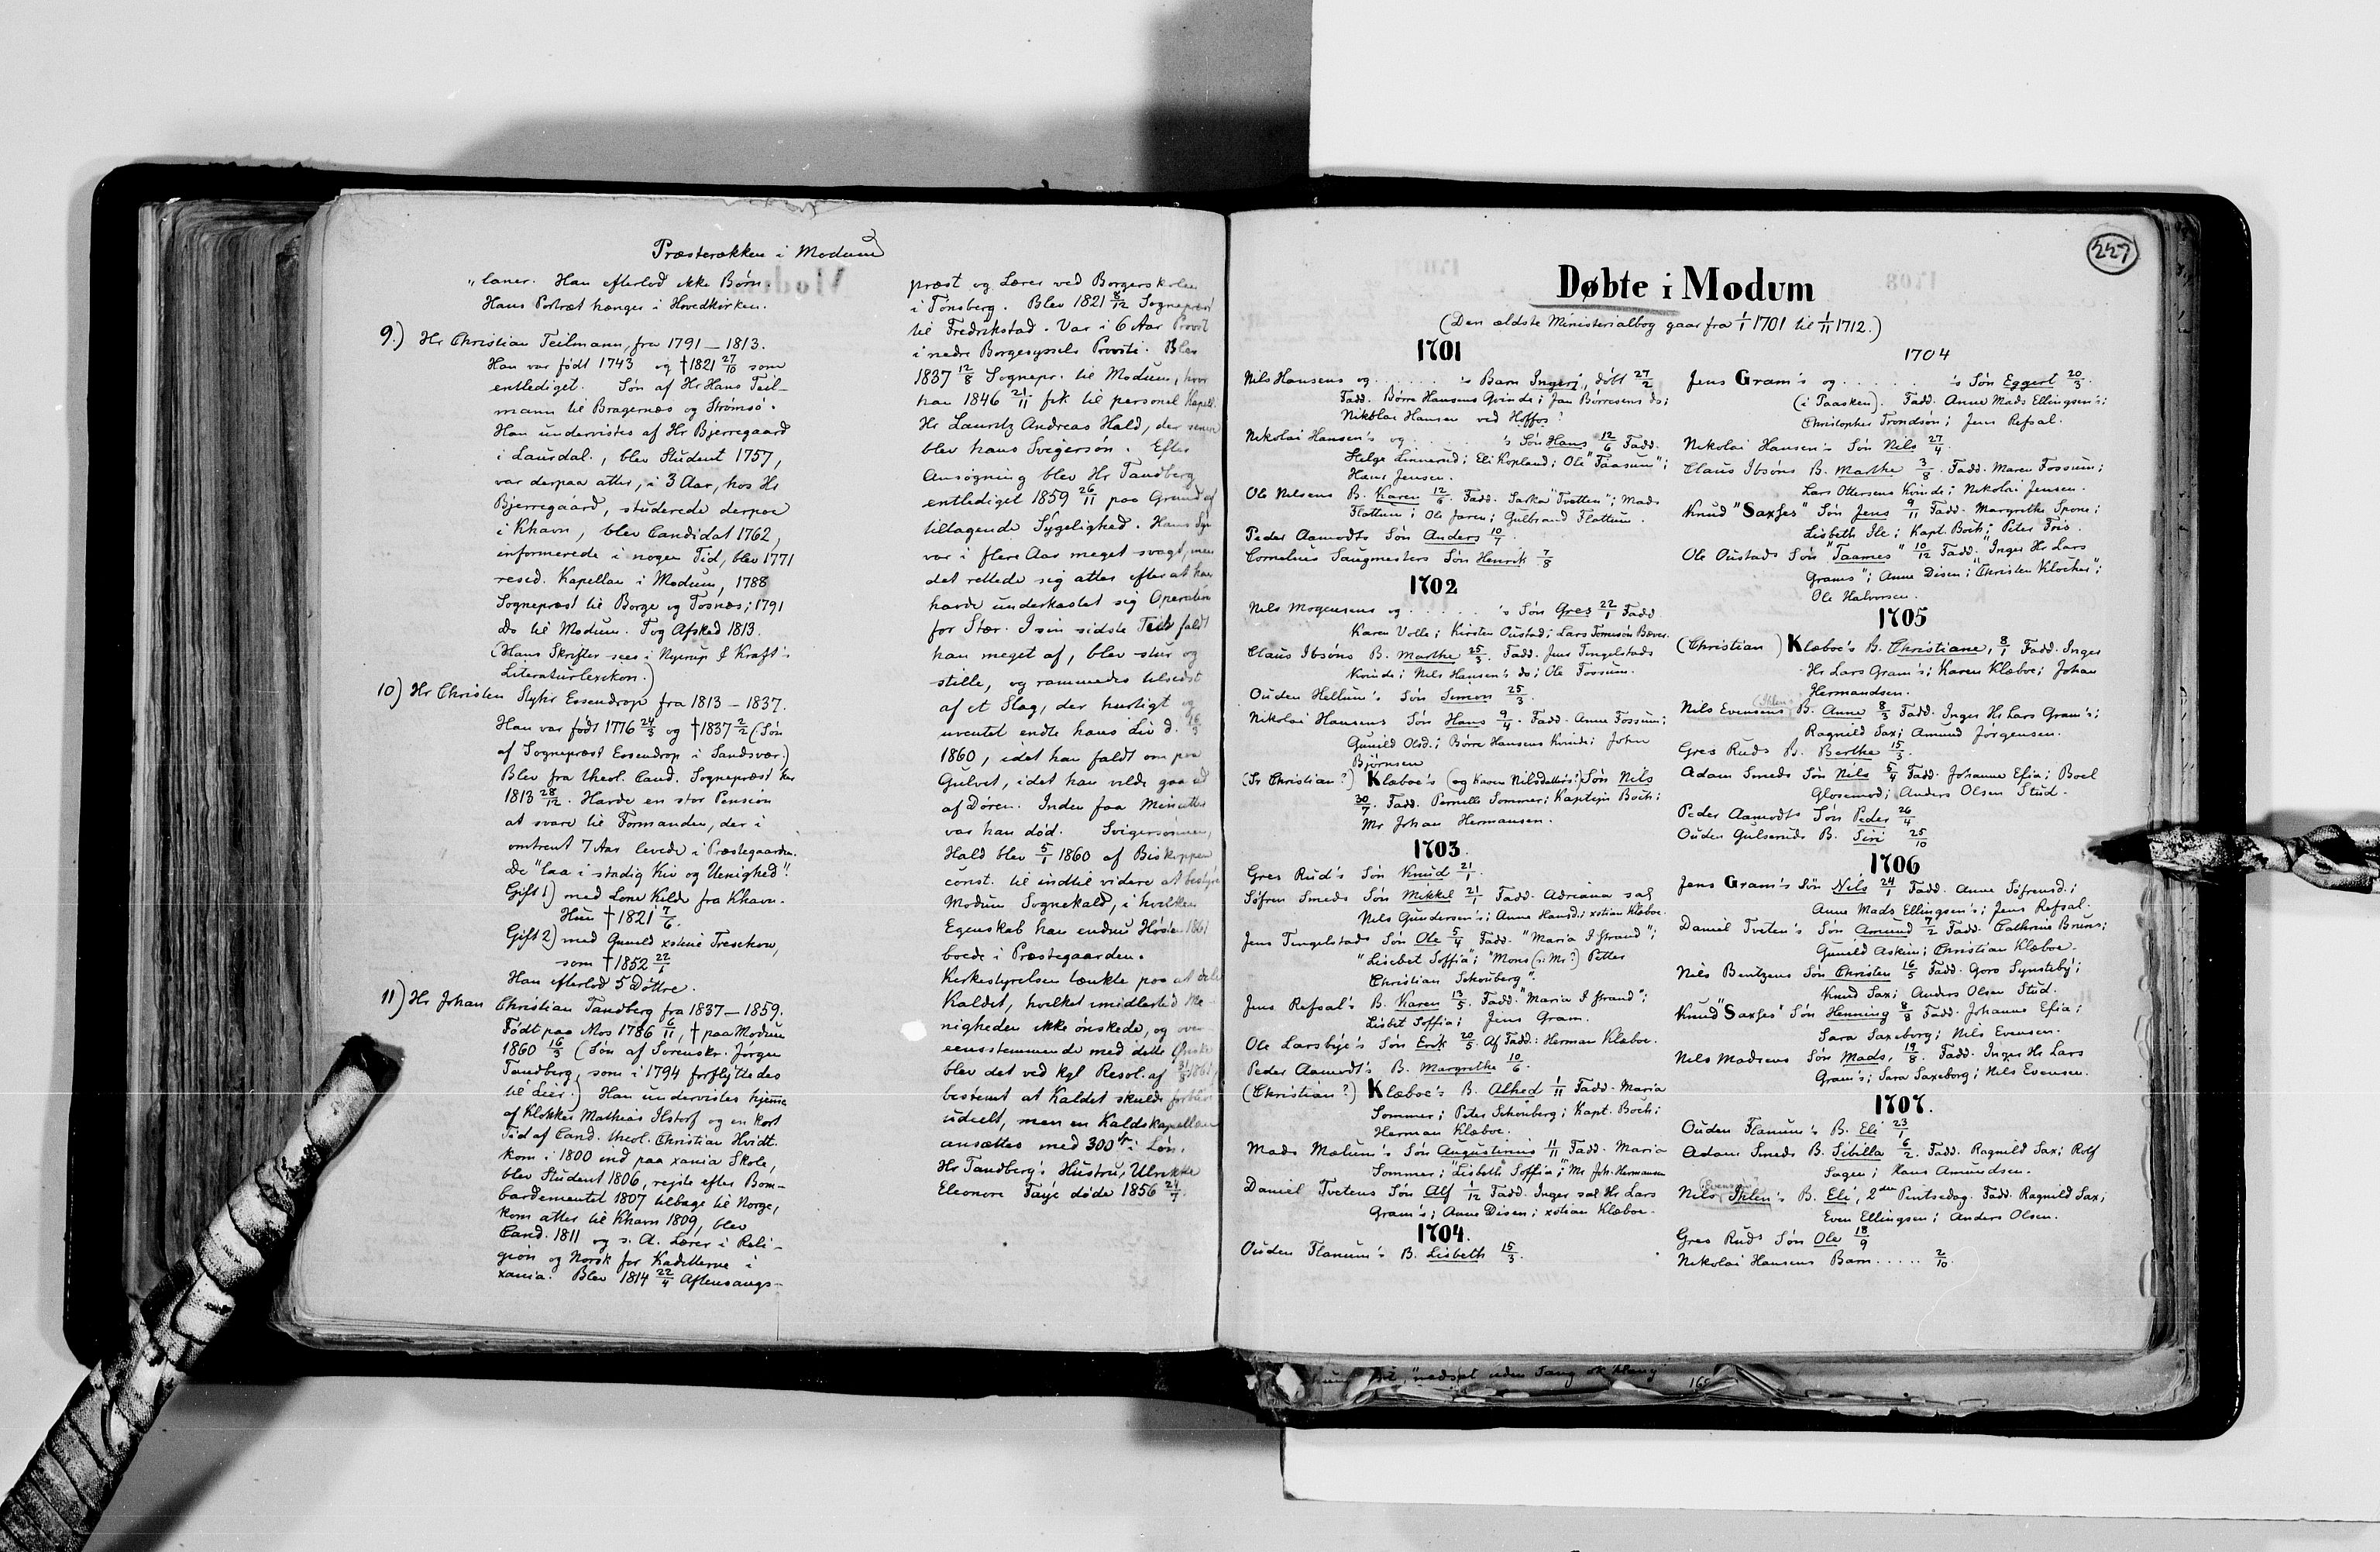 Præsterækken i Modum
"laner. Han efterlod ikke Børn.
Hans Portræt hænger i Hovedkirken.
9.) Hr Christian Teilmann, fra 1791 – 1813.
Han var født 1743 og †1821 27/10 som
entlediget. Søn af Hr Hans Teil-
mann til Bragernæs og Strømsø.
Han undervistes af Hr Bjerregaard
i Laurdal., blev Student 1757,
var derpaa atter, i 3 Aar, hos Hr
Bjerregaard, studerede derpaa
i Khavn, blev Candidat 1762,
informerede i nogen Tid, blev 1771
resid. Kapellan i Modum, 1788
Sognepræst til Borge og Tosnæs; 1791
do til Modum. Tog Afsked 1813.
(Hans Skrifter sees i Nyerup & Kraft's
Literaturlexikon.)
10) Hr Christen Stykr Essendrop fra 1813 – 1837.
Han var født 1776 24/3 og †1837 2/2 (Søn
af Sognepræst Essendrop i Sandsvær)
Blev fra theol. Cand. Sognepræst her
1813 28/12. Havde en stor Pension
at svare til Formanden, der i
omtrent 7 Aar levede i Præstegaarden.
De "laa i stadig Kiv og Uenighed".
Gift 1) med Lone Kilde fra Khavn.
Hun †1821 7/6.
Gift 2) med Gunild xstine Treschow,
som †1852 22/1
Han efterlod 5 Døttre.
11) Hr Johan Christian Tandberg fra 1837 – 1859.
Født paa Mos 1786 6/11, † paa Modum
1860 16/3 (Søn af Sorenskr. Jørgen
Tandberg, som i 1794 forflyttedes
til Lier.) Han undervistes hjemme
af Klokker Mathias Ilstof og en kort
Tid af Cand. theol. Christian Hvidt.
kom i 1800 ind paa xania Skole,
blev Student 1806, reiste efter Bom-
bardementet 1807 tilbage til Norge,
kom atter til Khavn 1809, blev
Cand. 1811 og s. A. Lærer i Reli-
gion og Norsk for Kadetterne i
xania. Blev 1814 22/4 Aftensangs-
præst og Lærer ved Borgerskolen
i Tønsberg. Blev 1821 8/12 Sognepræst
til Fredrikstad. Var i 6 Aar Provst
i nedre Borgesyssels Provsti. Blev
1837 12/8 Sognepr. til Modum, hvor
han 1846 21/11 fik til personel Kapell.
Hr Lauritz Andreas Hald, der senere
blev hans Svigersøn. Efter
Ansøgning blev Hr Tandberg
entlediget 1859 26/11 paa Grund af
tiltagende Sygelighed. Hans Syn
var i flere Aar meget svagt, men
det rettede sig atter efter at han
havde underkastet sig Operation
for Stær. I sin sidste Tid faldt
han meget af, blev stur og
stille, og rammedes tilsidst
af et Slag, der hurtigt og
uventet endte hans Liv d. 16/3
1860, idet han faldt om paa
Gulvet, idet han vilde gaa ud
af Døren. Inden faa Minutter
var han død. Svigersønnen,
Hald blev 5/1 1860 af Biskoppen
const. til indtil videre at bestyre
Modum Sognekald, i hvilken
Egenskab han endnu Høsten 1861
boede i Præstegaarden.
Kirkestyrelsen tænkte paa at dele
Kaldet, hvilket imidlertid Me-
nigheden ikke ønskede, og over-
eensstemmende med dette Ønske
blev det ved kgl Resol. af 31/8 1861
bestemt at Kaldet skulde forblive
udeelt, men en Kaldskapellan
ansættes med 300 i Løn.
Hr Tandberg's Hustru, Ulrikke
Eleonore Faye døde 1856 24/7.
227
Døbte i Modum
(Den ældste Ministerialbog gaar fra 1/1 1701 til 1/11 1712.)
1701
Nils Hansens og . . . . . . 's Barn Ingerj, døbt 27/2
Fadd. Børre Hansens Qvinde; Jan Børresens do;
Nikolai Hansen ved Hoffos?
Nikolai Hansen's og . . . . . 's Søn Hans 12/6 Fadd.
Helge Linnerud; Eli Kopland; Ole "Taasum";
Hans Jensen.
Ole Nilsens B. Karen 12/6. Fadd. Sarka "Tvetten"; Mads
Flottum; Ole Jaren; Gulbrand Flottum.
Peder Aamodts Søn Anders 10/7.
Cornelius Saugmesters Søn Henrik 7/8
1702
Nils Mogensens og . . . . . . 's Søn Gres 22/1 Fadd
Karen Volle; Kirsten Oustad; Lars Tomesøn Bæver.
Claus Ibsøns B. Marthe 25/3. Fadd. Jens Tingelstads
Kvinde; Nils Hansen's do; Ole Fossum.
Ouden Hellum's Søn Simon 25/3.
Nikolai Hansens Søn Hans 9/4. Fadd. Anne Fossum;
Gunild Olsd.; Børre Hansens Kvinde; John
Bjørnsen
(Sr Christian?) Klæboe's (og Karen Nilsdatters?) Søn Nils
30/7. Fadd. Pernelle Sommer; Kaptejn Boch;
Mr Johan Hermansen.
1703.
Gres Rud's Søn Knud 21/1.
Søfren Smeds Søn Mikkel 21/1 Fadd. Adriana sal
Nils Gundersen's; Anne Hansd.; xstian Klæboe.
Jens Tingelstads Søn Ole 5/4 Fadd. "Maria I Strand";
"Lisebet Soffia"; "Mons (ɔ: Mr?) Petter
Christian Schouberg".
Jens Refsal's B. Karen 13/5. Fadd. "Maria I Strand";
Lisbet Soffia; Jens Gram.
Ole Larsbye's Søn Erik 20/5. Af Fadd.: Herman Klæboe.
Peder Aamodt's B. Margrethe 10/6.
(Christian?) Klæboe's B. Alhed 1/11 Fadd. Maria
Sommer; Peter Schouberg; Kapt. Boch;
Herman Klæboe.
Mads Mælum's Søn Augustinius 11/11 Fadd. Maria
Sommer; "Lisbeth Soffia"; Mr Joh. Hermansen
Daniel Tvetens Søn Alf 1/12 Fadd. Inger sal Hr Lars
Gram's; Anne Disen; xstian Klæboe.
1704.
Ouden Flanum's B. Lisbeth 15/3.
1704
Jens Gram's og . . . . . . 's Søn Eggert 20/3.
(i Taasken). Fadd. Anne Mads Ellingsen's;
Christopher Trondsøn; Jens Refsal.
Nikolai Hansen's Søn Nils 27/4.
Claus Ibsøns B. Marthe 3/8. Fadd. Maren Fossum;
Lars Ottersens Kvinde; Nikolai Jensen.
Knud "Saxses" Søn Jens 9/11 Fadd. Margrethe Spone;
Lisbeth Ile; Kapt. Boch; Peter Friis.
Ole Oustads Søn "Taames" 10/12 Fadd. "Inger Hr Lars
Grams"; Anne Disen; "Christen Klocker";
Ole Halvorsen.
1705
(Christian ) Klæboe's B. Christiane, 8/1 Fadd. Inger
Hr Lars Gram's; Karen Klæboe; Johan
Hermandsen.
Nils Evensens (Ihlen) B. Anne 8/3 Fadd. Inger Hr Lars Gram's;
Ragnild Sax; Amund Jørgensen.
Gres Ruds B. Berthe 15/3.
Adam Smeds Søn Nils 5/4 Fadd. Johanne Efia; Boel
Glosemod; Anders Olsen Stud.
Peder Aamodts Søn Peder 26/4
Ouden Gulseruds B. Siri 25/10
1706
Jens Gram's Søn Nils 24/1 Fadd. Anne Søfrensd.;
Anne Mads Ellingsen's; Jens Refsal.
Daniel Tveten's Søn Amund 7/2 Fadd. Cathrine Bruns;
Gunild Askim; Christian Klæboe.
Nils Bentzens Søn Christen 16/5 Fadd. Goro Synsteby;
Knud Sax; Anders Olsen Stud.
Knud "Saxses" Søn Henning 8/8 Fadd. Johanne Efia;
Sara Saxeborg; Nils Evensen.
Nils Madsens Søn Mads, 19/8. Fadd. Inger Hr Lars
Gram's; Sara Saxeborg; Nils Evensen.
1707.
Ouden Flanum's B. Eli 23/1
Adam Smeds B. Sibilla 6/2. Fadd. Ragnild Sax; Rolf
Sagen; Hans Amundsen.
Nils (Evensen) Ihlen's B. Eli, 2den Pintsedag. Fadd. Ragnild Sax;
Even Ellingsen; Anders Olsen.
Gres Ruds Søn Ole 18/9
Nikolai Hansens Barn . . . . . 2/10.